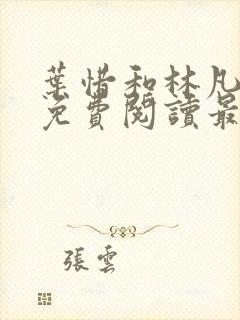 葉惜和林凡
免費閱讀最
張雲